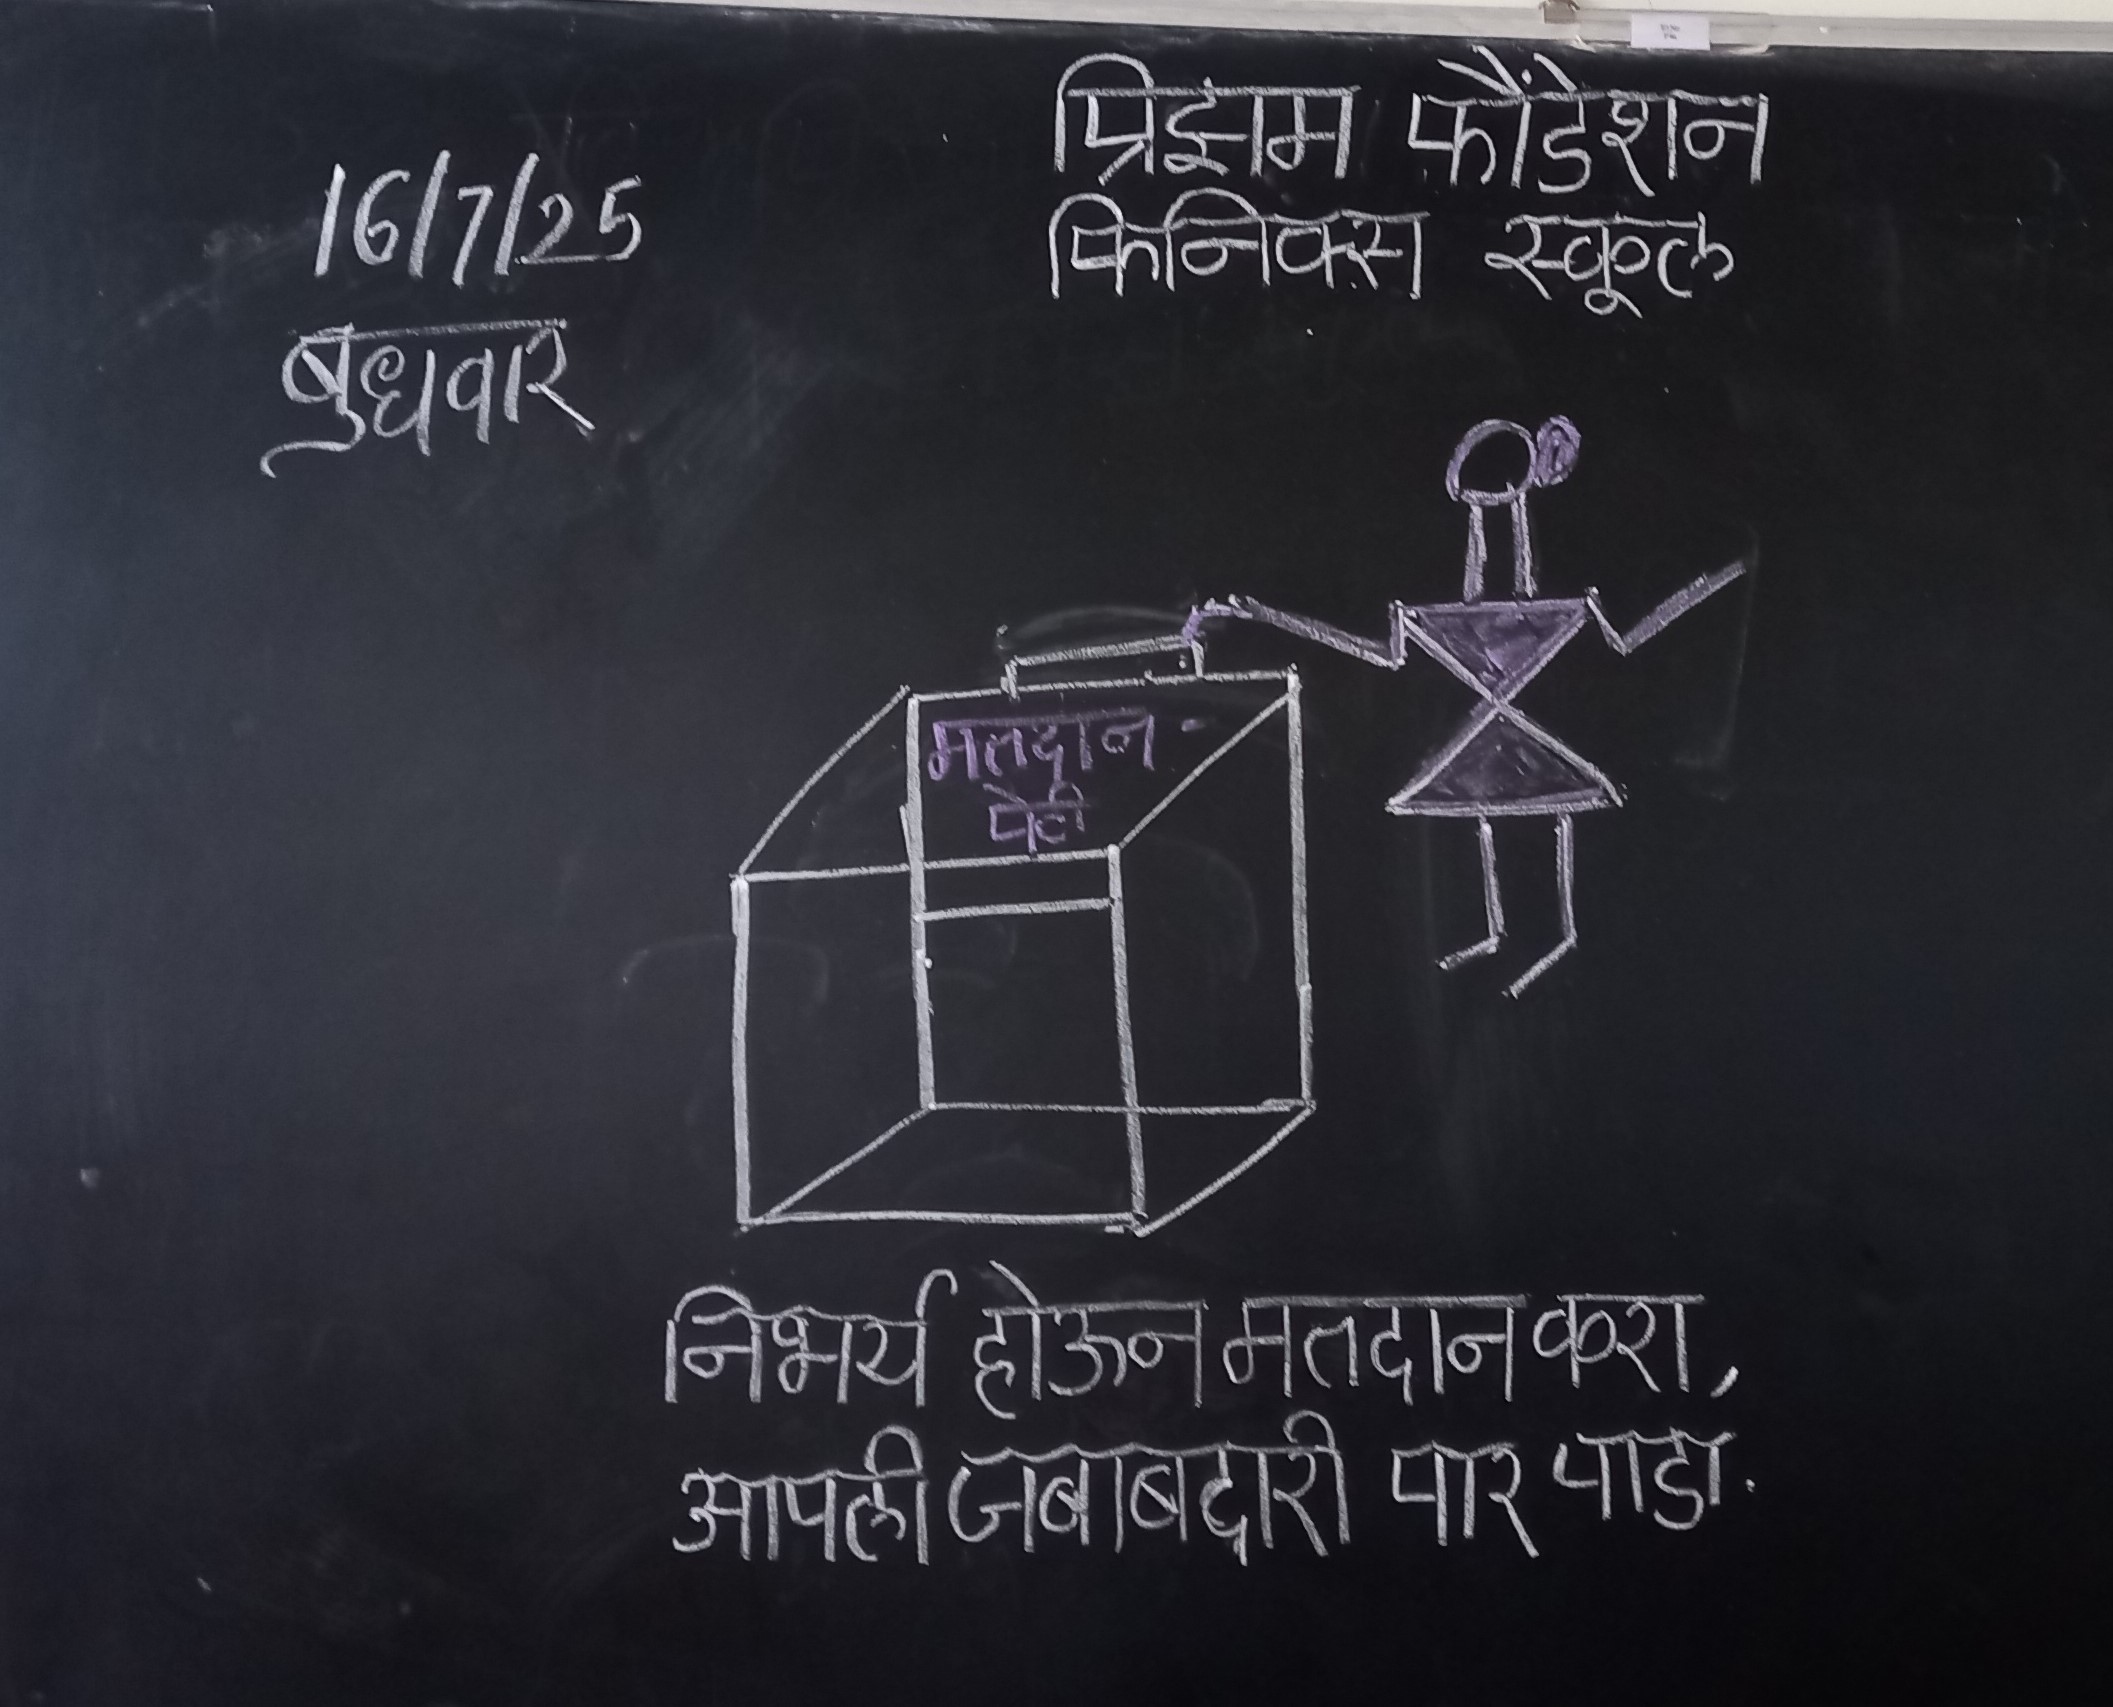 16/7/25
बुधवार
प्रिझम फौंडेशन
फिनिक्स स्कूल
मतदान
पेटी
निभर्य होऊन मतदान करा,
आपली जबाबदारी पार पाडा.